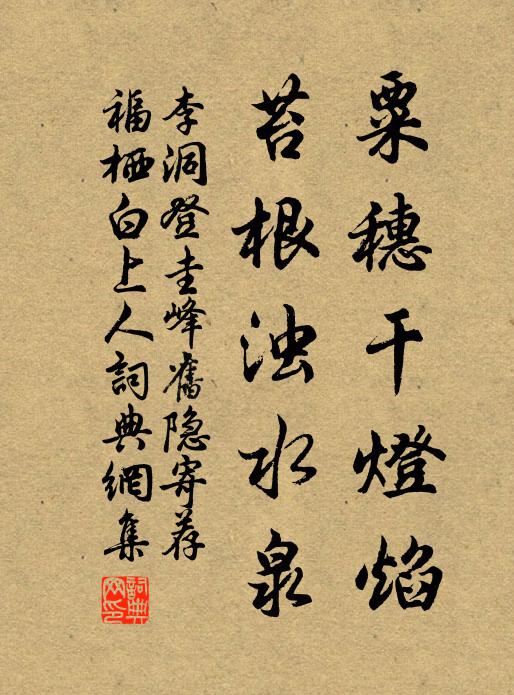 粟穗干燈焰
苔根浊水泉
李洞登圭峰舊隐寄荐
福栖白上人詞典網集
詞典网印